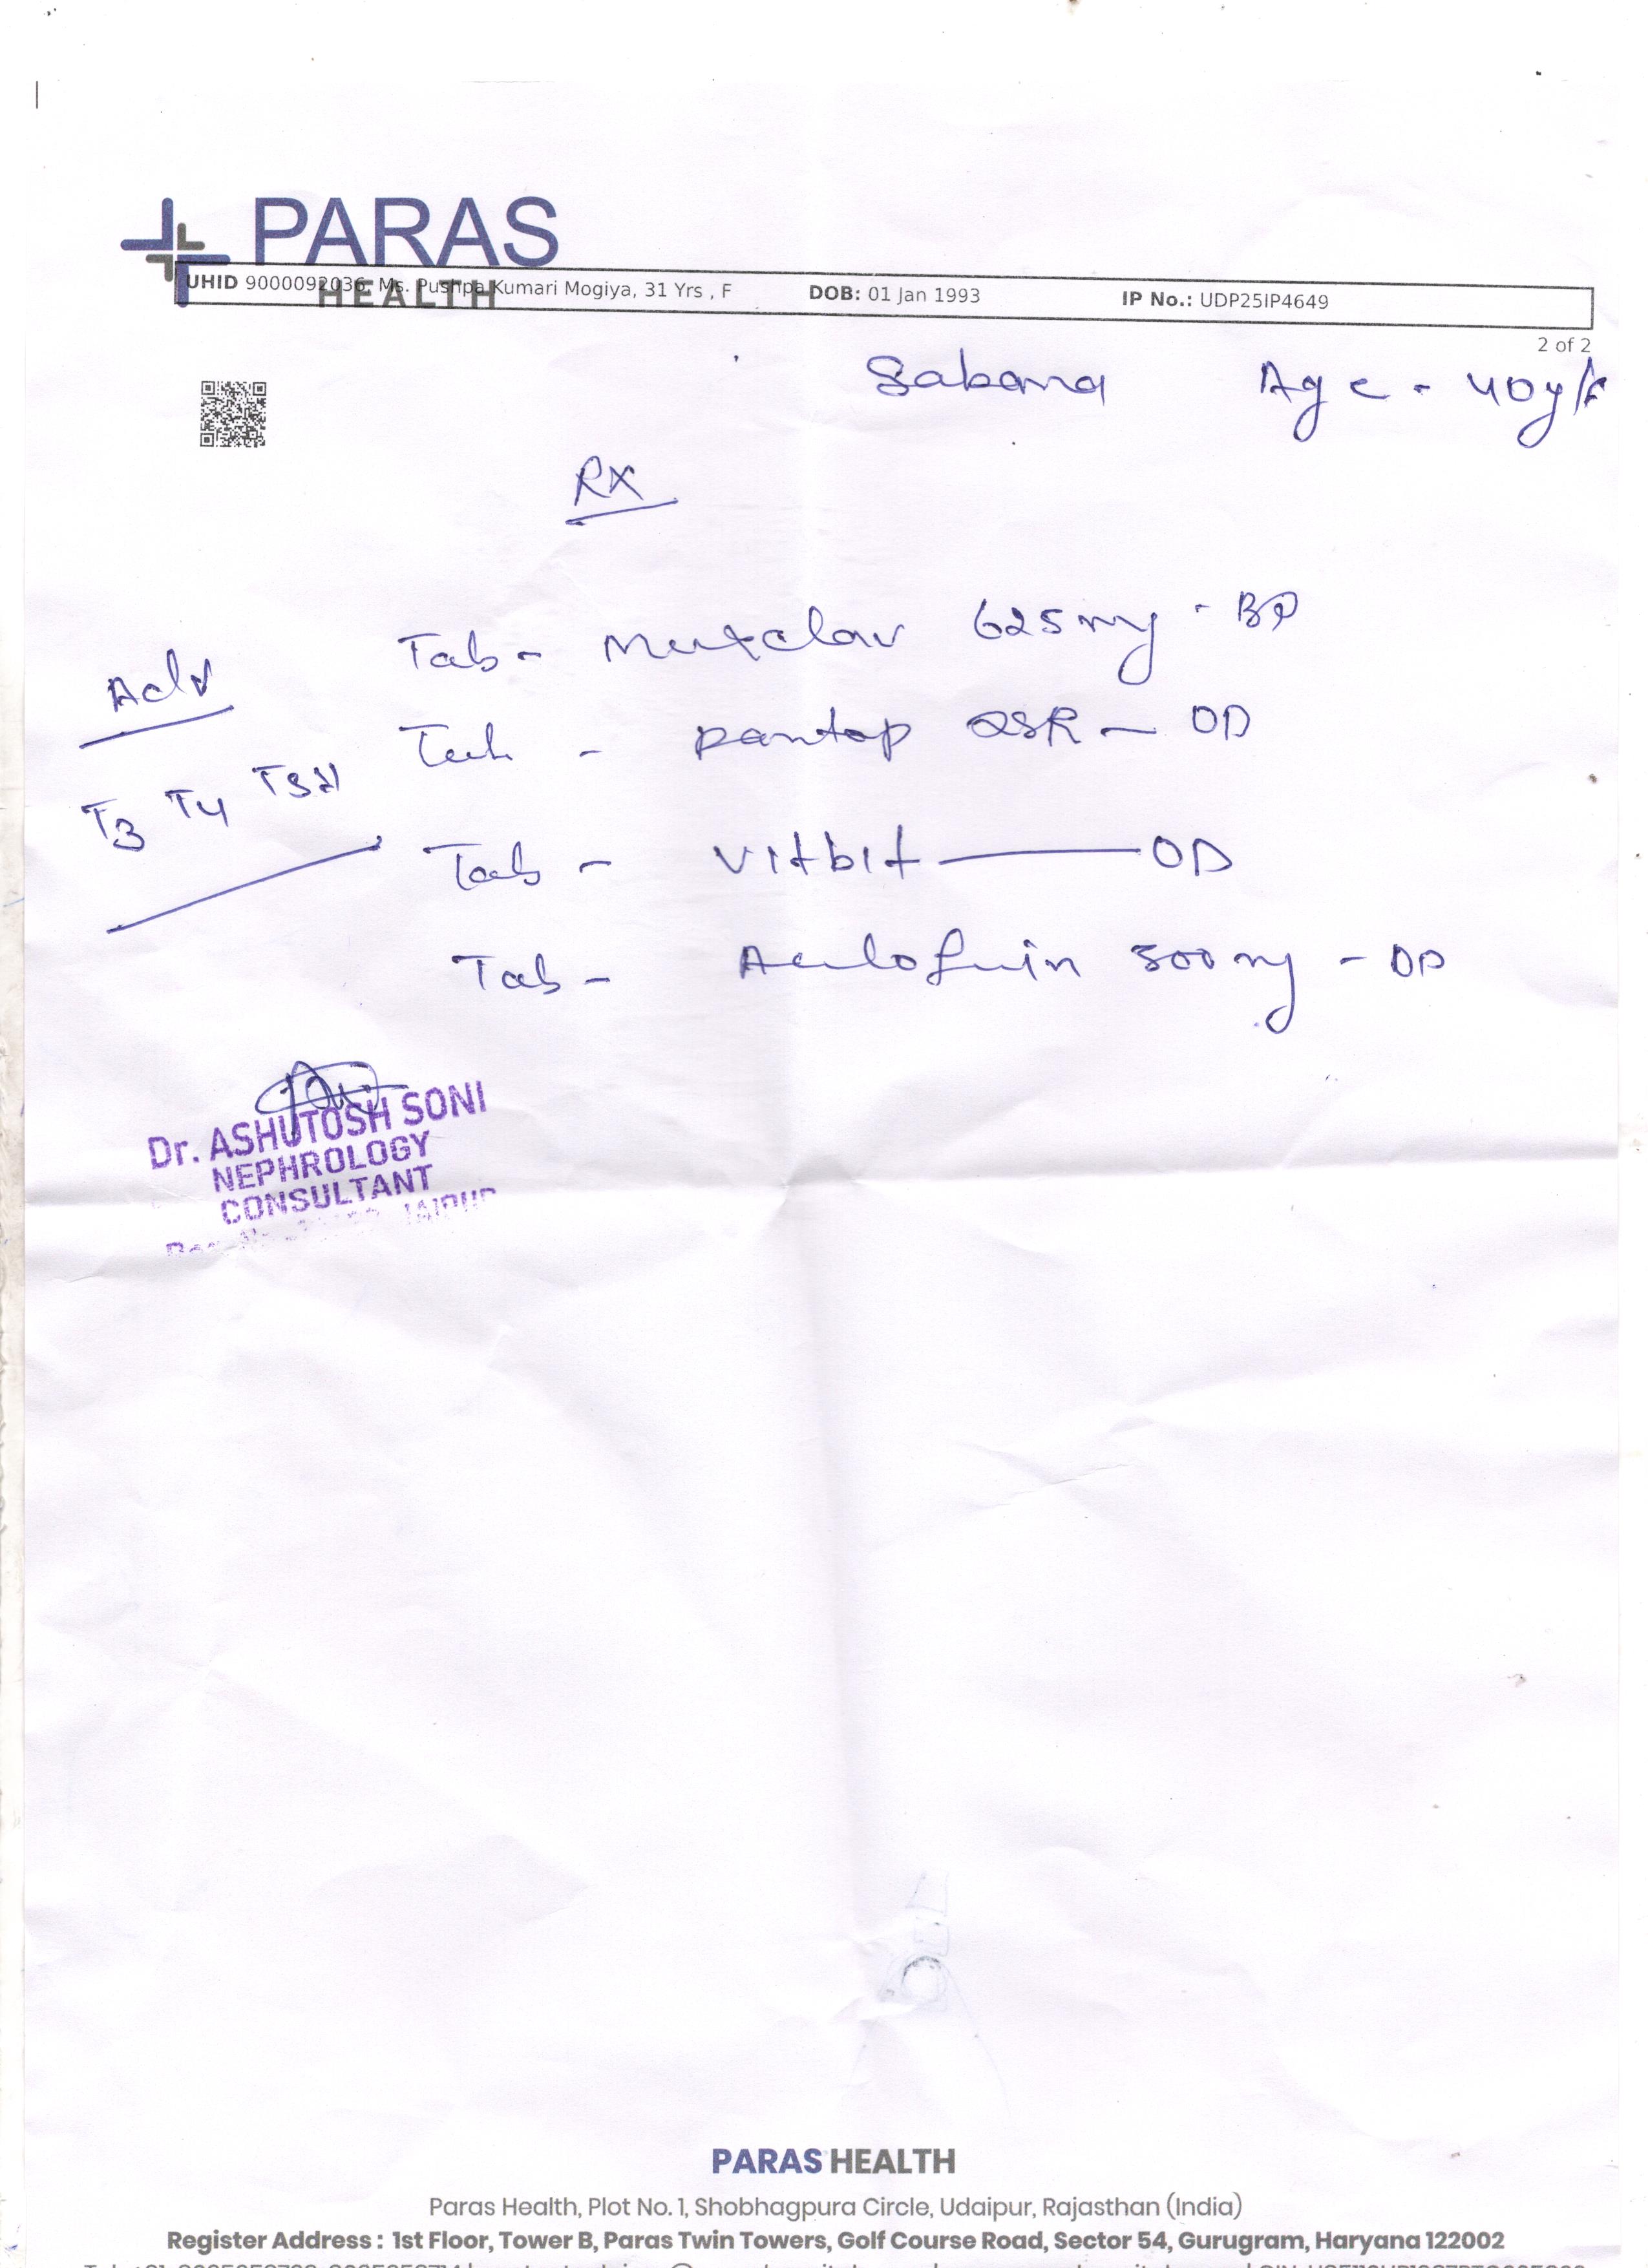 PARAS
HEALTH
UHID 9000092036, Ms. Pushpa Kumari Mogiya, 31 Yrs , F DOB: 01 Jan 1993 IP No.: UDP25IP4649
2 of 2
Sabana Age - 40y/F
RX
Adv
T3 T4 TSH
Tab - Mexclav 625mg - BD
Tab - pantop DSR - OD
Tab - vitbit OD
Tab - 500mg - OD
Dr. ASHUTOSH SONI
NEPHROLOGY
CONSULTANT
JAIPUR
PARAS HEALTH
Paras Health, Plot No. 1, Shobhagpura Circle, Udaipur, Rajasthan (India)
Register Address : 1st Floor, Tower B, Paras Twin Towers, Golf Course Road, Sector 54, Gurugram, Haryana 122002